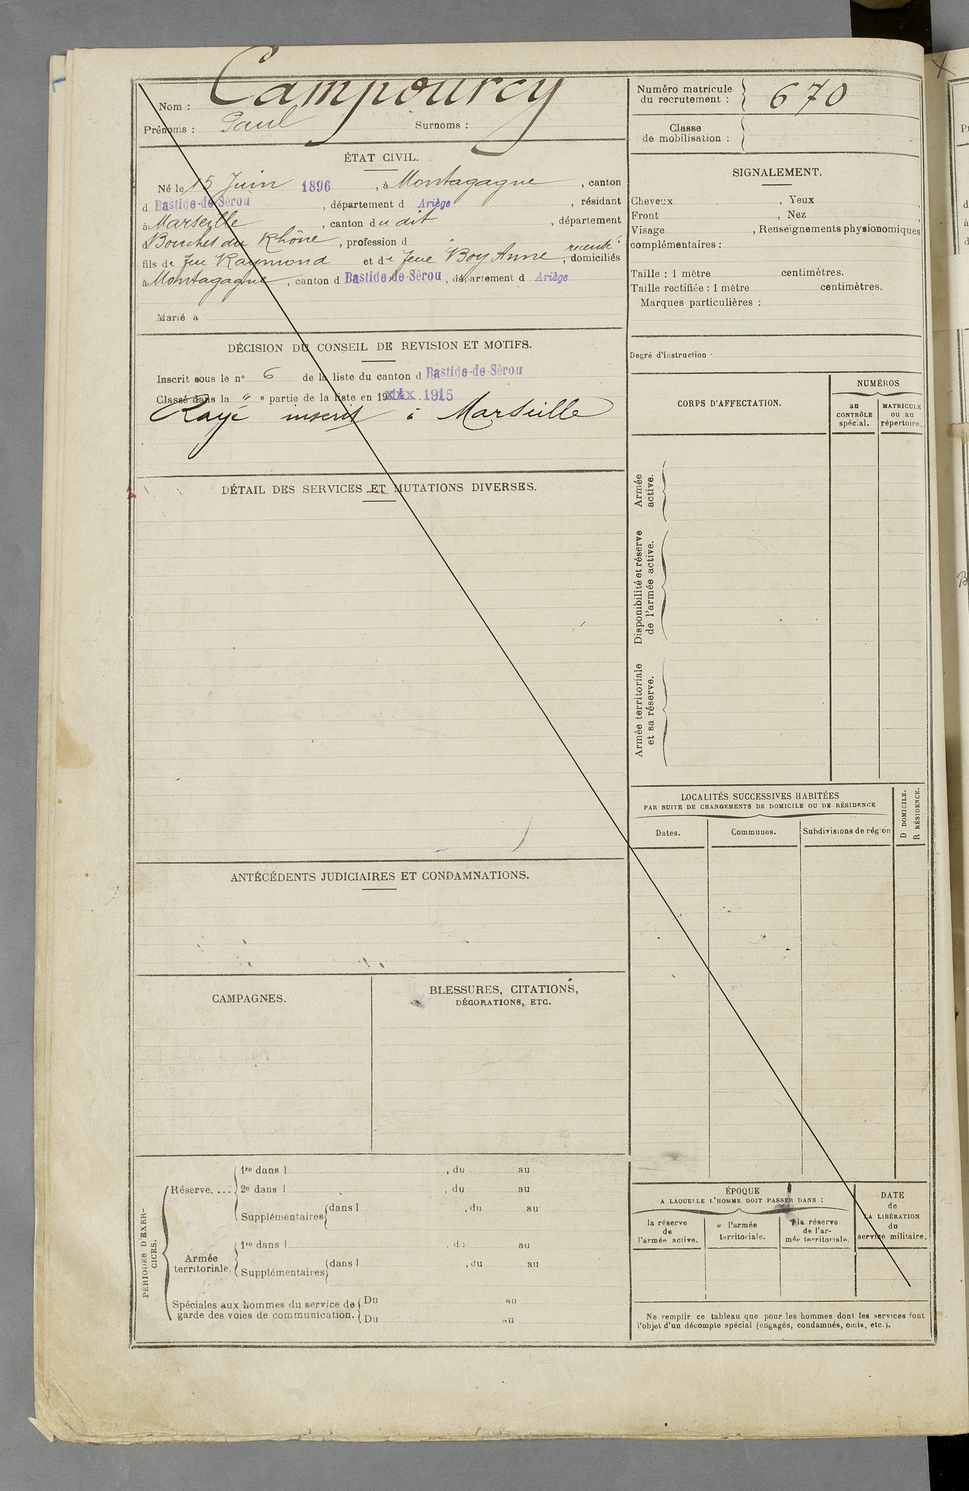 Nom : Campourcy
Prénoms : Paul Surnoms :
Numéro matricule du recrutement : 670
Classe de mobilisation :
ÉTAT CIVIL.
Né le 15 Juin 1896, à Montagagne, canton
d Bastide-de-Sérou, département d Ariège, résidant
à Marseille, canton du dit, département
Bouches du Rhône, profession d
fils de feu Raymond et de feue Boy Anne, domiciliés
à Montagagne, canton d Bastide-de-Sérou, département d Ariège
Marié à
DÉCISION DU CONSEIL DE REVISION ET MOTIFS.
Inscrit sous le n° 6 de la liste du canton d Bastide-de-Sérou
Classé dans la " e partie de la liste en 19 1915
Rayé inscrit à Marseille
DÉTAIL DES SERVICES ET MUTATIONS DIVERSES.
ANTÉCÉDENTS JUDICIAIRES ET CONDAMNATIONS.
CAMPAGNES.
BLESSURES, CITATIONS,
DÉCORATIONS, ETC.
PÉRIODES D'EXERCICES.
Réserve. ...
1re dans l , du au
2e dans l , du au
Supplémentaires dans l , du au
Armée territoriale.
1re dans l , du au
Supplémentaires dans l , du au
Spéciales aux hommes du service de garde des voies de communication.
Du au
Du au
SIGNALEMENT.
Cheveux , Yeux
Front , Nez ,
Visage , Renseignements physionomiques
complémentaires :
Taille : 1 mètre centimètres.
Taille rectifiée : 1 mètre centimètres.
Marques particulières :
Degré d'instruction
CORPS D'AFFECTATION.
NUMÉROS
au CONTRÔLE spécial.
MATRICULE ou au répertoire.
Armée active.
Disponibilité et réserve de l'armée active.
Armée territoriale et sa réserve.
LOCALITÉS SUCCESSIVES HABITÉES
PAR SUITE DE CHANGEMENTS DE DOMICILE OU DE RÉSIDENCE
D DOMICILE.
R RÉSIDENCE.
Dates. Communes. Subdivisions de région
ÉPOQUE
A LAQUELLE L'HOMME DOIT PASSER DANS :
la réserve de l'armée active.
l'armée territoriale.
la réserve de l'armée territoriale.
DATE de LA LIBÉRATION du service militaire.
Ne remplir ce tableau que pour les hommes dont les services font
l'objet d'un décompte spécial (engagés, condamnés, omis, etc.).